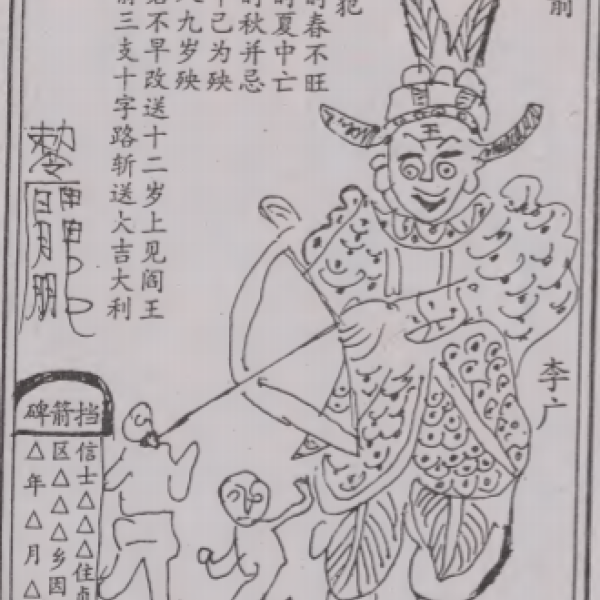 犯
春不旺
夏中亡
秋并忌
为殃
九岁殃
不早改送十二岁上见阎王
三支十字路斩送大吉大利
李广
挡箭碑
信士△△△住
区△△△乡因
△年△月△